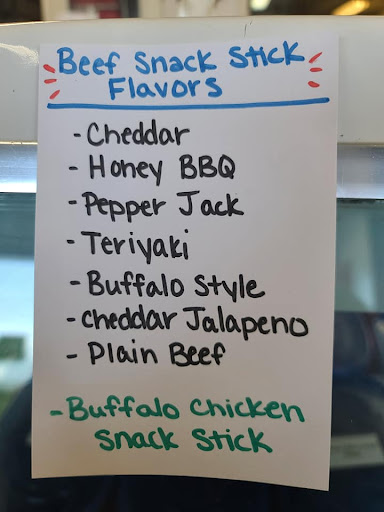 Beef Snack Stick
Flavors
- Cheddar
- Honey BBQ
- Pepper Jack
- Teriyaki
- Buffalo Style
- Cheddar Jalapeno
- Plain Beef
- Buffalo Chicken
Snack Stick